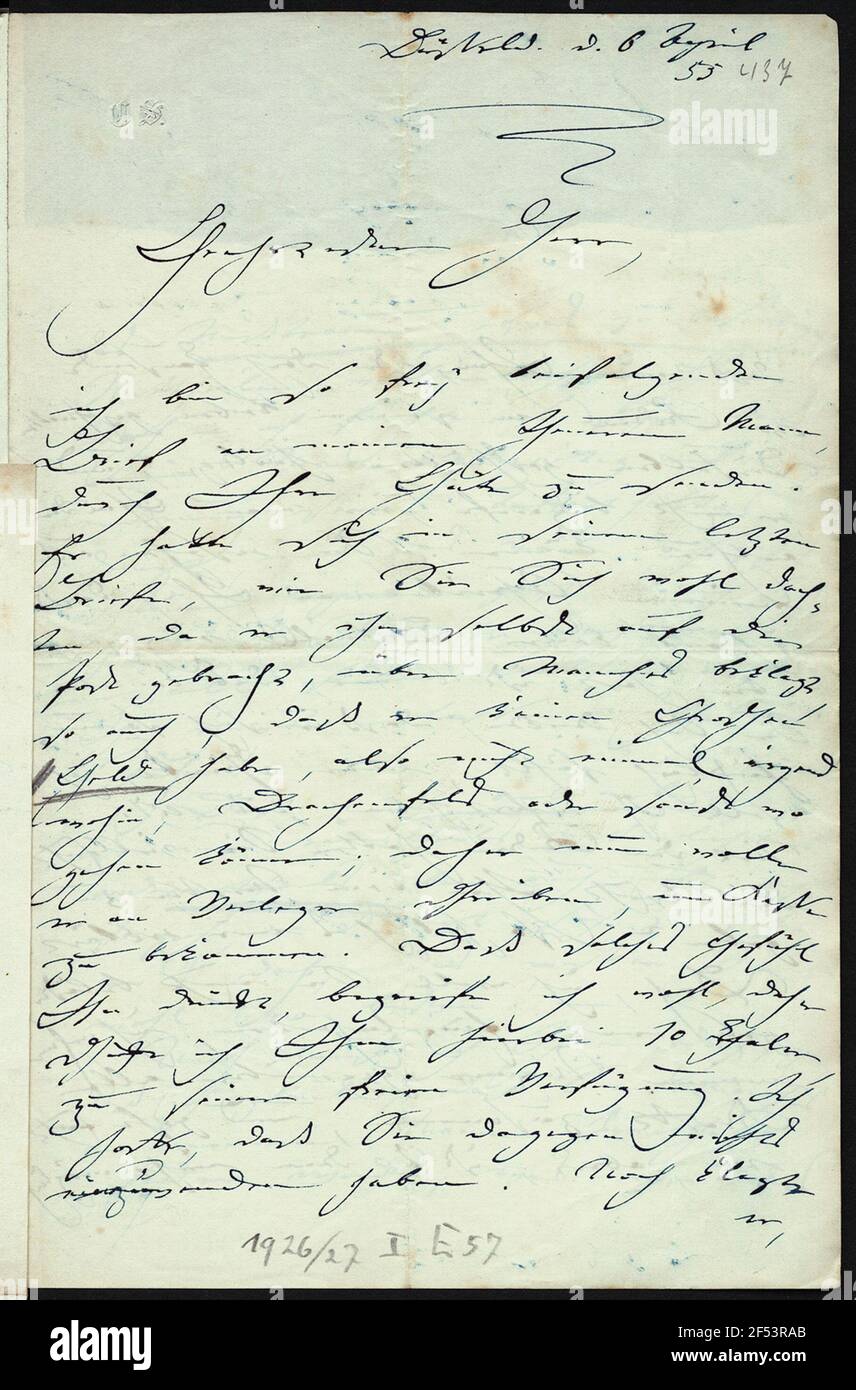 Düsseld. d. 6 April
55 437
C S.
Geehrtester Herr,
ich bin so frey beifolgenden
Brief an meinen theueren Mann,
durch Ihre Güte zu senden.
Er hatte sich in seinem letzten
Briefe, wie Sie Sich wohl dach-
ten, da er ihn selbst auf die
Post gebracht, über Manches beklagt,
so auch, daß er keinen Groschen
Geld habe, also nicht einmal irgend
wohin, Drachenfels oder sonst wo
gehen könne; daher nun wolle
er an Verleger schreiben, um
zu bekommen. Daß solches Gefühl
Ihn drückt, begreife ich wohl, daher
schicke ich Ihnen hierbei 10 Thaler,
zu seiner freien Verfügung. Ich
hoffe, daß Sie dagegen nichts
einzuwenden haben. Noch klagte
er,
1926/27 I E 57
alamy
Image ID: 2F53RAB
www.alamy.com